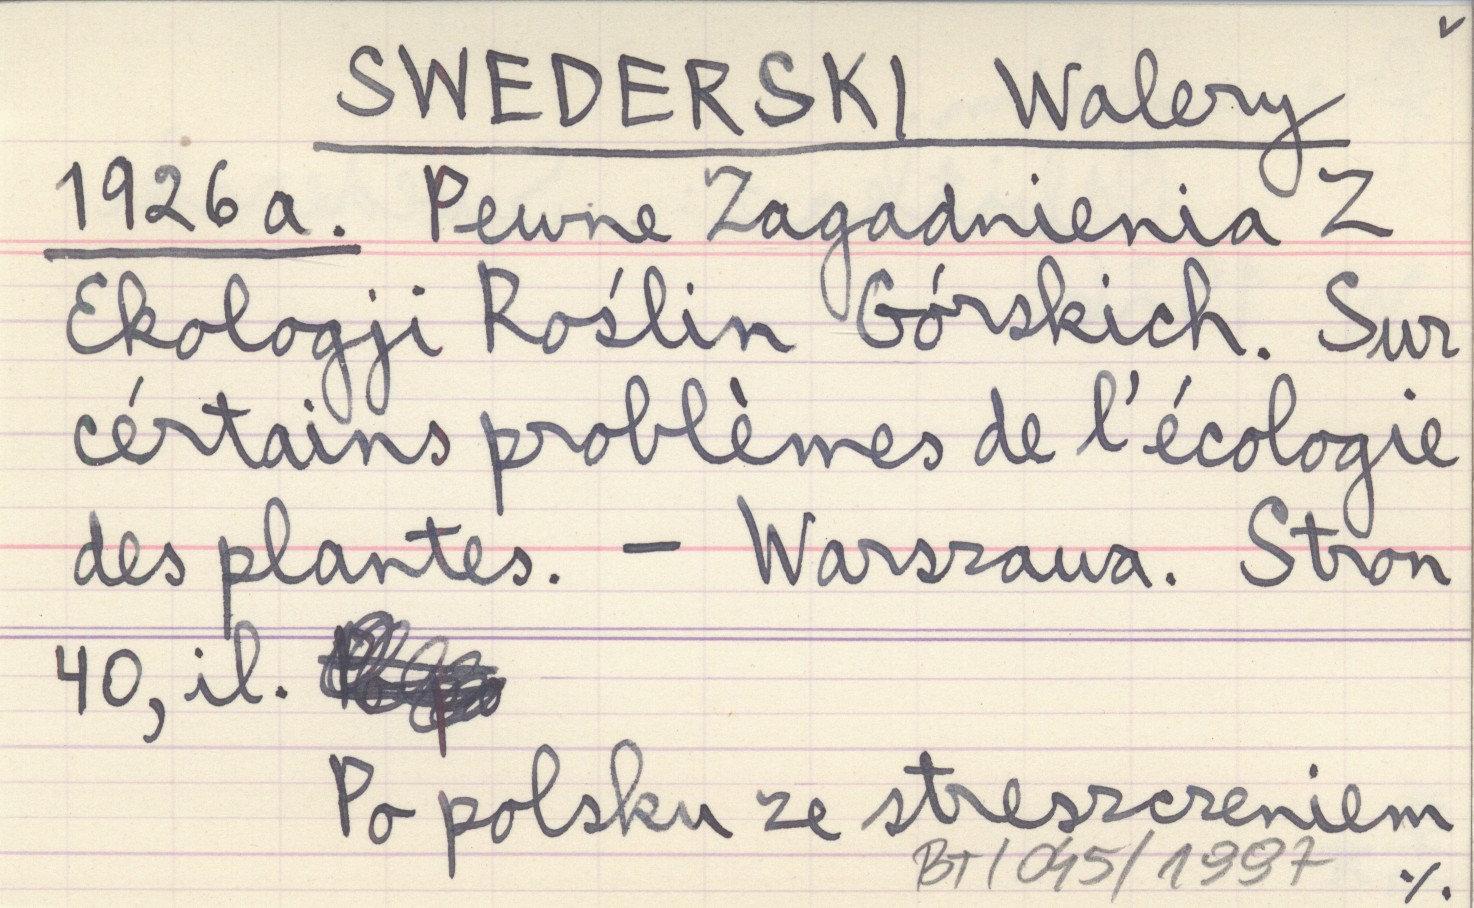 SWEDERSKI Walery
1926a. Pewne Zagadnienia Z
Ekologji Roślin Górskich. Sur
cértains problèmes de l'écologie
des plantes. — Warszawa. Stron
40, il.
Po polsku ze streszczeniem
BT/045/1997
./.